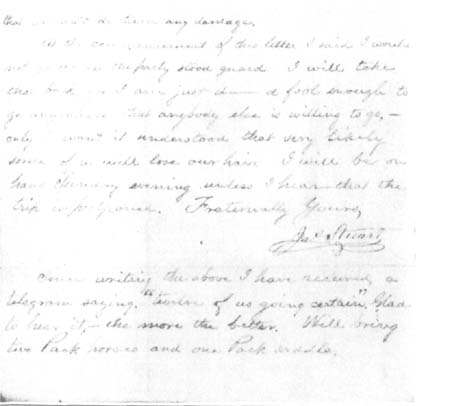 that           any damage.
At the commencement of this letter I said I would
not             the party stood guard I will take
that back        I am just d—d fool enough to
go anywhere that anybody else is willing to go, –
only   want it understood that very likely
some of us will lose our hair. I will be on
hand Sunday evening unless I hear that the
trip is postponed. Fraternally Yours,
Jas Stuart
Since writing the above I have received a
telegram saying, "twelve of us going certain". Glad
to hear it, – the more the better. Will bring
two Pack horses and one Pack saddle.